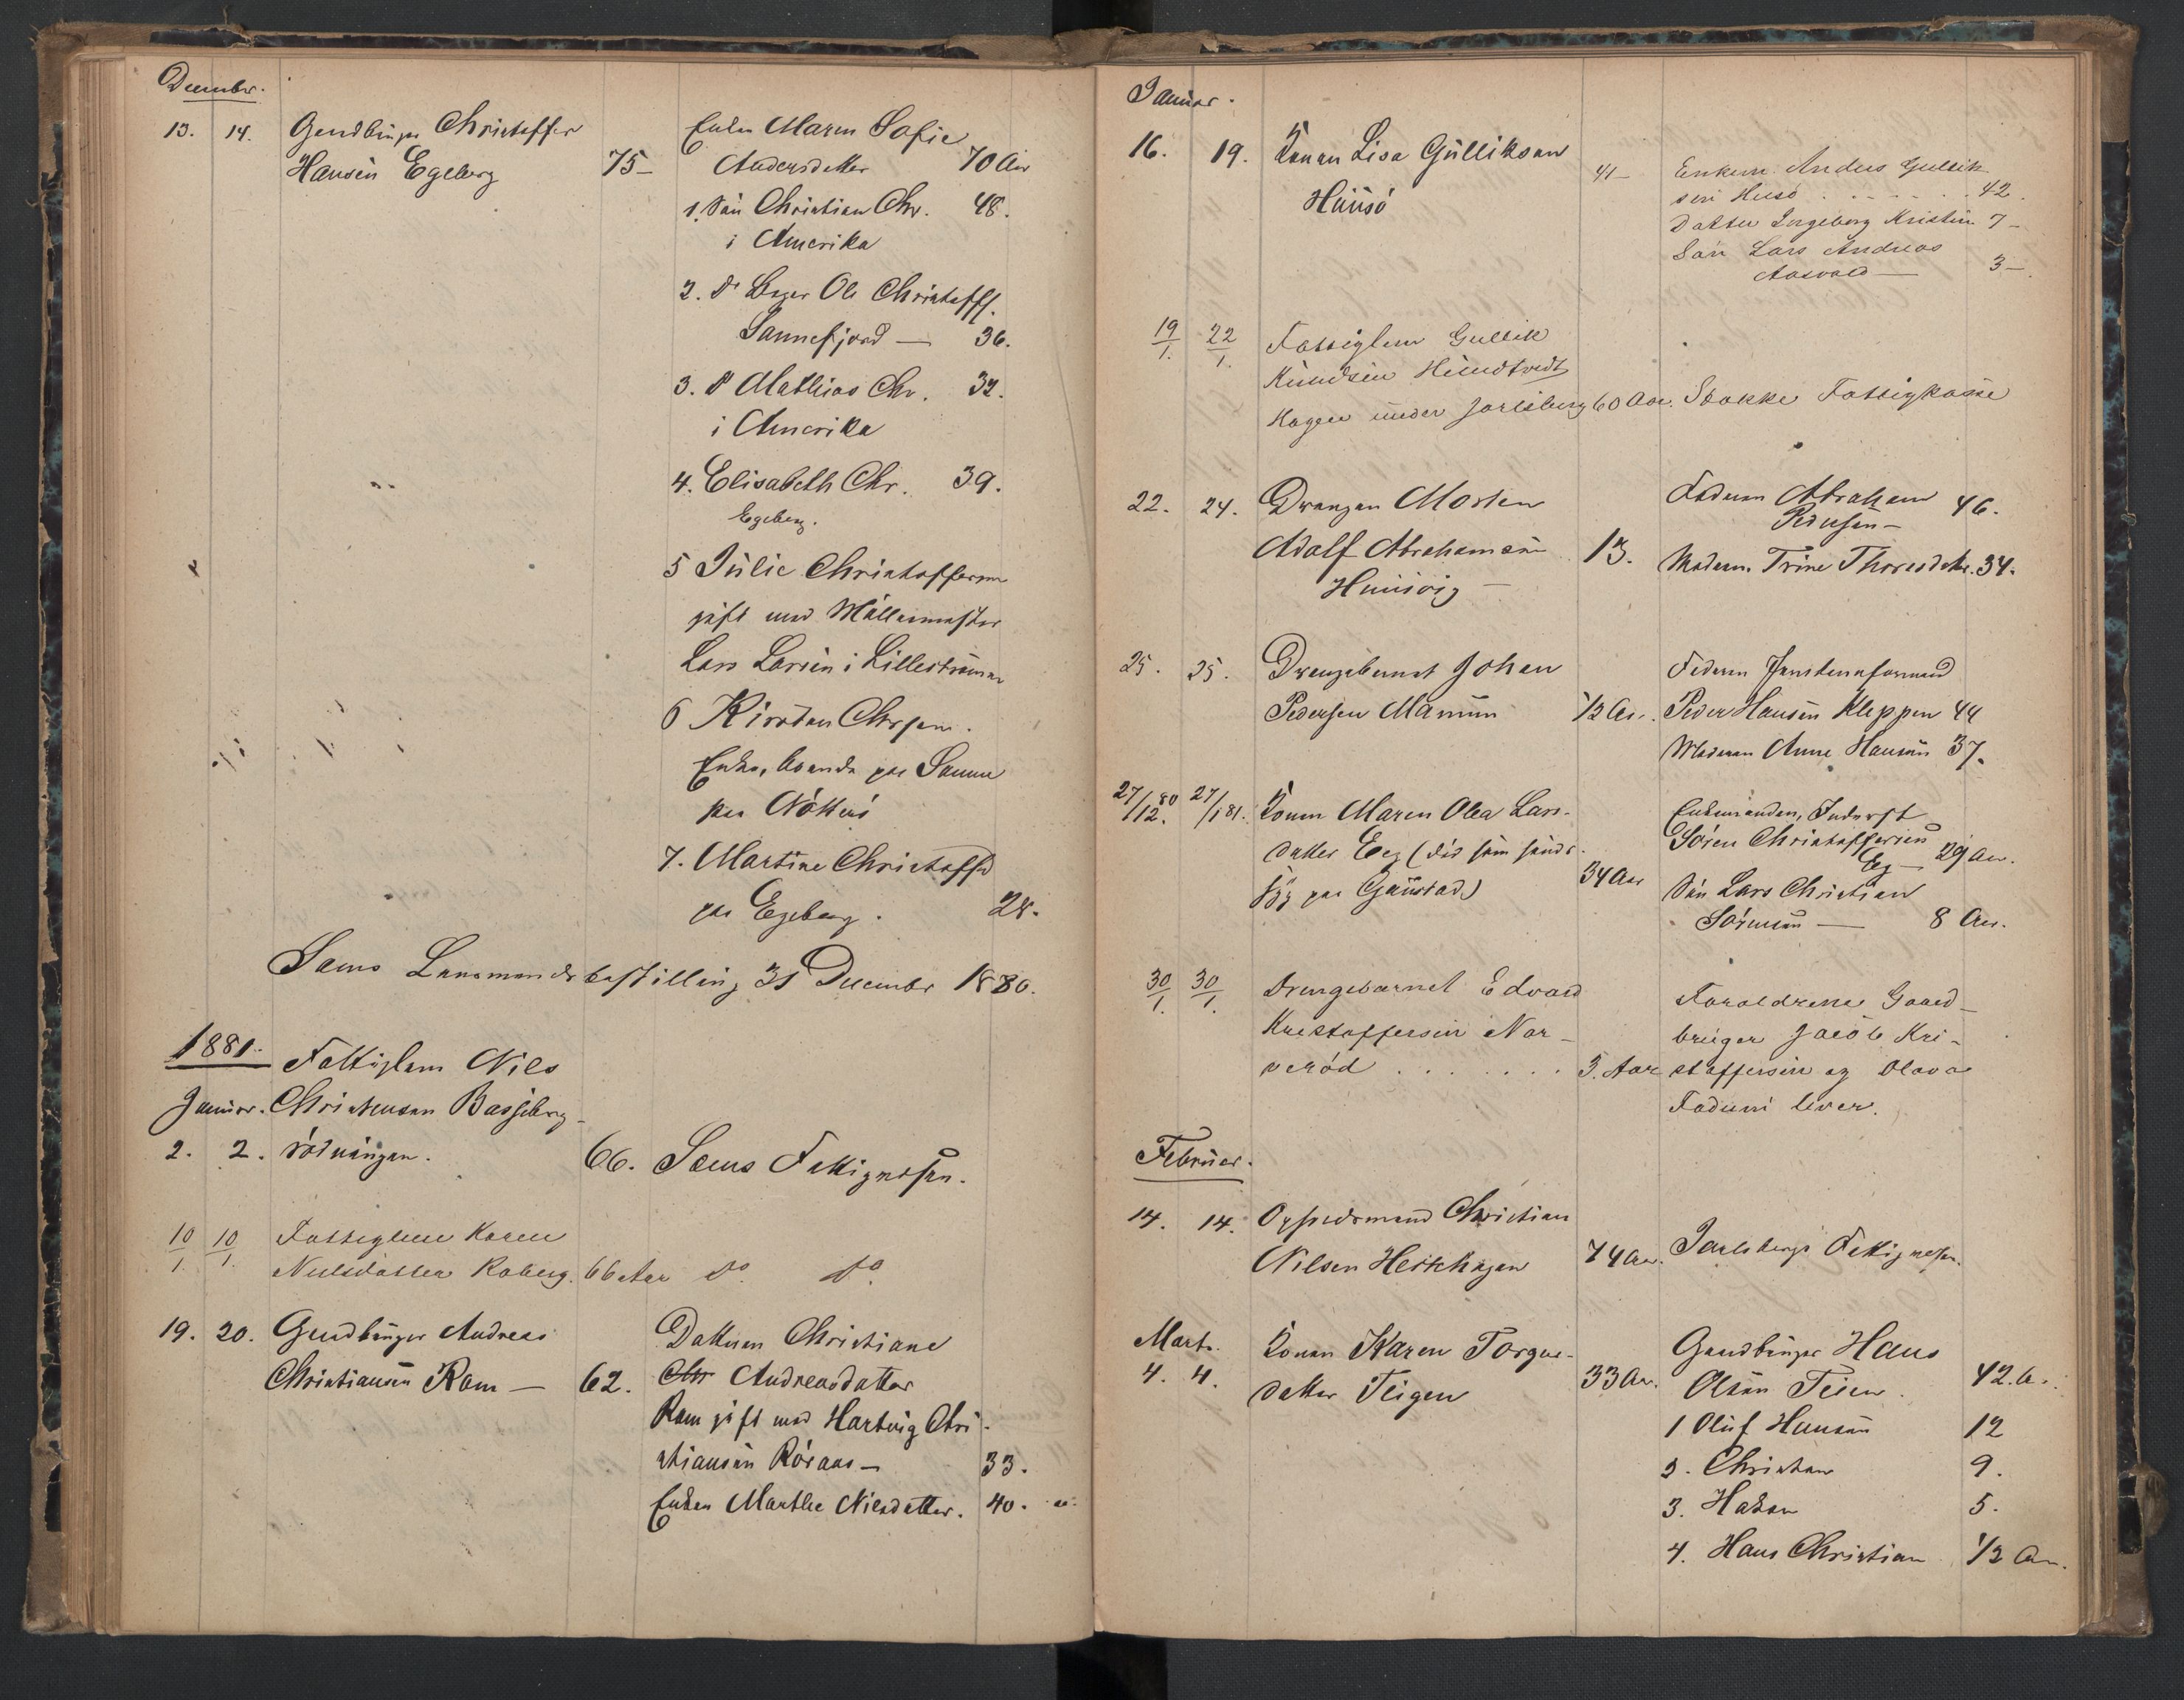 December.
13. 14. Gaardbruger Christoffer
Hansen Egeberg 75 –
Enken Maren Sofie
Andersdatter 70 Aar
1. Søn Christian Chr. 48.
i Amerika
2. do Ole Christoff.
Sannefjord — 36.
3. do Mathias Chr. 32.
i Amerika
4. Elisabeth Chr. 39.
Egeberg.
5 Julie Christoffersen
gift med Møllermester
Lars Larsen i Lillestrømmen
6 Kirsten Chrsen.
Enke, boende paa
paa Nøtterø
7. Martine Christoffd
paa Egeberg. 28.
Sems Lensmandsbestilling 31 December 1880.
1881.
Fattiglem Nils
Januar. Christensen Basjeberg-
2. 2. rødningen. 66. Sems Fattigvæsen.
10/1. 10/1. Fattiglem Karen
Nielsdatter Roberg. 66 Aar do do
19. 20. Gaardbruger Andreas
Christiansen Ram — 62.
Datteren Christiane
Chr Andreasdatter
Ram gift med Hartvig Chri-
stiansen Røraas — 33.
Enken Marthe Nilsdatter. 40.
Januar.
16. 19. Konen Lisa Gulliksen
Huusø 41 —
Enkem Anders Gullik
sen Husø . . . . . . 42.
Datter Ingeborg Kristin 7 –
Søn Lars Andreas
Aasvald — 3 –
19/1. 22/1. Fattiglem Gullik
Knudsen Hundtvedt
Hagen under Jarlsberg 60 Aar. Stokke Fattigkasse
22. 24. Drengen Morten
Adolf Abrahamsen 13.
Huusvig —
Faderen Abraham
Pedersen – 46.
Moderen Trine Thoresdtr. 34.
25. 25. Drengebarnet Johan
Pedersen Mamum 1/2 Aar.
Faderen
Peder Hansen Kleppen 44
Moderen Anne Hansen 37.
27/12.80 27/1 81. Konen Maren Olea Lars-
datter Eeg (død som sinds-
syg paa Gaustad) 34 Aar
Enkemanden, Inderst
Søren Christoffersen
Eg — 29 Aar.
Søn Lars Christian
Sørensen — 8 Aar.
30/1. 30/1. Drengebarnet Edvard
Kristoffersen Nar-
verød . . . . . . . 3. Aar
Foraldrene Gaard-
bruger Jacob Kri-
stoffersen og Olava
Faderen lever.
Februar.
14. 14. Opsidsmand Christian
Nilsen Heskhagen 74 Aar. Jarlsbergs Fattigvæsen.
Marts.
4. 4. Konen Karen Torger-
datter Teigen 33 Aar.
Gaardbruger Hans
Olsen Teien. 42. A.
1 Oluf Hansen 12
2. Christian 9.
3. Hakon 5.
4. Hans Christian 1/2 Aar.